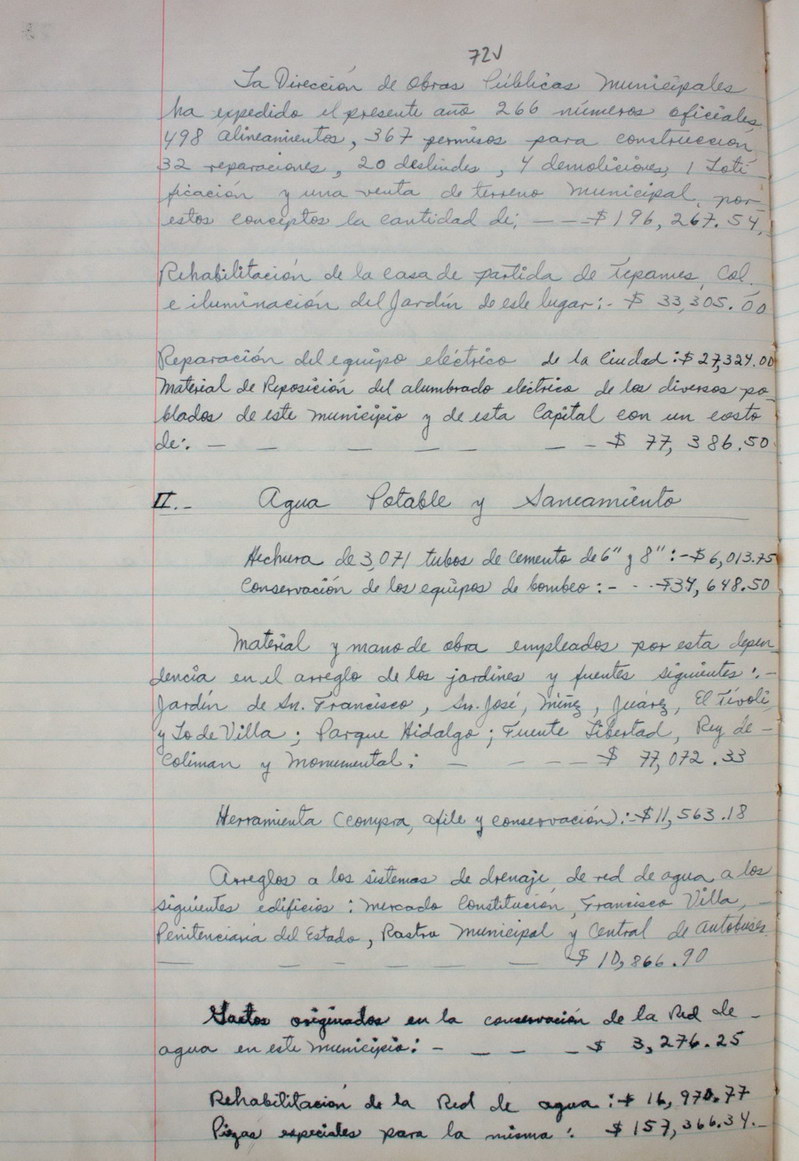 72v
La Dirección de Obras Públicas Municipales
ha expedido el presente año 266 números oficiales,
498 alineamientos, 367 permisos para construcción,
32 reparaciones, 20 deslindes, 4 demoliciones, 1 Loti-
ficación y una venta de terreno Municipal, por
estos conceptos la cantidad de: — — $ 196, 267.54,
Rehabilitación de la casa de partida de Tepames, Col.
e iluminación del Jardín de este lugar:- $ 33,305.00
Reparación del equipo eléctrico de la Ciudad:$ 27,324.00
Material de Reposición del alumbrado eléctrico de los diversos po-
blados de este Municipio y de esta Capital con un costo
de:. — — — — — — — $ 77, 386.50
II.- Agua Potable y Saneamiento
Hechura de 3,071 tubos de cemento de 6" y 8":-$6,013.75
Conservación de los equipos de bombeo:- - -$34,648.50
Material y mano de obra empleados por esta depen-
dencia en el arreglo de los jardines y fuentes siguientes:.-
Jardín de Sn. Francisco, Sn. José, Núñez, Juárez, El Tívoli,
y Lo de Villa; Parque Hidalgo; Fuente Libertad, Rey de -
Coliman y Monumental: — — — — $ 77,072.33
Herramienta (compra, afile y conservación):-$11,563.18
Arreglos a los sistemas de drenaje, de red de agua, a los
siguientes edificios: Mercado Constitución, Francisco Villa, -
Penitenciaría del Estado, Rastro Municipal y Central de Autobuses.
— — — — — — $ 10,866.90
Gastos originados en la conservación de la Red de -
agua en este Municipio: - — — — $ 3,276.25
Rehabilitación de la Red de agua:$ 16,970.77
Piezas especiales para la misma: $ 157,366.34.-